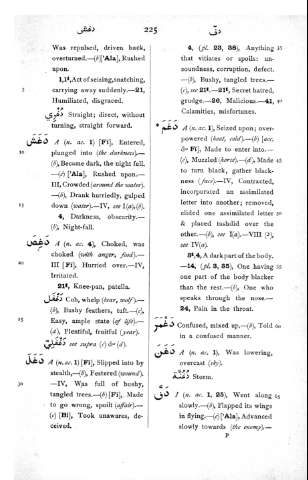 دغغ 225 دفّ
Was repulsed, driven back,
overturned.—(b)['Ala], Rushed
upon.
1,1ᵗ,Act of seizing,snatching,
carrying away suddenly.—21,
Humiliated, disgraced.
Straight; direct, without
turning, straight forward.
دَغَشَ A (n. ac. 1) [Fī], Entered,
plunged into (the darkness).—
(b), Became dark, the night fell.
—(c) ['Ala], Rushed upon.—
III, Crowded (around the water).
—(b), Drank hurriedly, gulped
down (water).—IV, see I(a),(b).
4, Darkness, obscurity.—
(b), Night-fall.
دَغِصَ A (n. ac. 4), Choked, was
choked (with anger, food).—
III [Fī], Hurried over.—IV,
Irritated.
21ᵗ, Knee-pan, patella.
دَغْفَل Cob, whelp (bear, wolf).—
(b), Bushy feathers, tuft.—(c),
Easy, ample state (of life).—
(d), Plentiful, fruitful (year).
see supra (c) & (d).
دَغَلَ A (n. ac. 1) [Fī], Slipped into by
stealth,—(b), Festered (wound).
—IV, Was full of bushy,
tangled trees.—(b) [Fī], Made
to go wrong, spoilt (affair).—
(c) [Bi], Took unawares, de-
ceived.
4, (pl. 23, 38), Anything
that vitiates or spoils: un-
soundness, corruption, defect.
—(b), Bushy, tangled trees.—
(c), see 21ᵗ.—21ᵗ, Secret hatred,
grudge.—20, Malicious.—41,
Calamities, misfortunes.
* دَغَمَ A (n. ac. 1), Seized upon; over-
powered (heat, cold).—(b) [acc.
& Fī], Made to enter into.—
(c), Muzzled (horse).—(d), Made
to turn black, gather black-
ness (face).—IV, Contracted,
incorporated an assimilated
letter into another; removed,
elided one assimilated letter
& placed tashdid over the
other.—(b), see I(a).—VIII
see IV(a).
3ᵗ,4, A dark part of the body.
—14, (pl. 3, 35), One having
one part of the body blacker
than the rest.—(b), One who
speaks through the nose.—
24, Pain in the throat.
Confused, mixed up.—(b), Told
in a confused manner.
دَغَنَ A (n. ac. 1), Was lowering,
overcast (sky).
Storm.
دَفَّ I (n. ac. 1, 25), Went along
slowly.—(b), Flapped its wings
in flying.—(c)['Ala], Advanced
slowly towards (the enemy).—
P